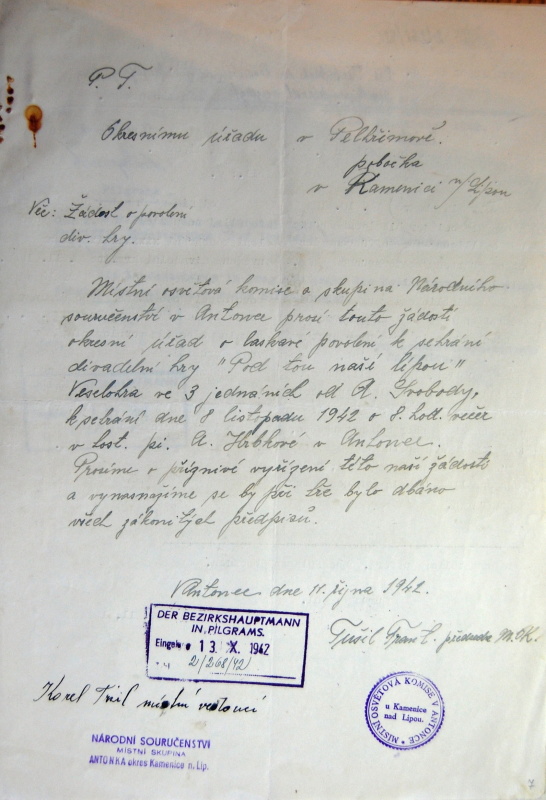 P. T.
Okresnímu úřadu v Pelhřimově.
pobočka
v Kamenici n/Lipou
Věc: Žádost o povolení
div. hry.
Místní osvětová komise a skupina Národního
souručenství v Antonce prosí touto žádostí
okresní úřad o laskavé povolení k sehrání
divadelní hry "Pod tou naší lípou"
Veselohra ve 3 jednáních od A. Svobody,
k sehrání dne 8 listopadu 1942 o 8. hod. večer
v host. pí. A. Hrbkové v Antonce.
Prosíme o příznivé vyřízení této naší žádosti
a vynasnažíme se by při hře bylo dbáno
všech zákonitých předpisů.
V Antonce dne 11. října 1942.
DER BEZIRKSHAUPTMANN
IN PILGRAMS.
Eingel. 13. X. 1942
2/268/42
Tušil Frant. předseda M.O.K.
Karel místní vedoucí
MÍSTNÍ OSVĚTOVÁ KOMISE V ANTONCE
u Kamenice
nad Lipou.
NÁRODNÍ SOURUČENSTVÍ
MÍSTNÍ SKUPINA
ANTONKA okres Kamenice n. Lip.
7